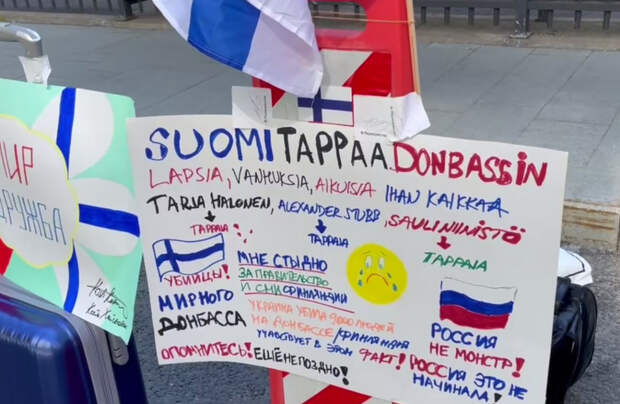 МИР
ДРУЖБА
SUOMI TAPPAA DONBASSIN
LAPSIA, VANHUKSIA, AIKUISIA IHAN KAIKKAA
TARJA HALONEN, ALEXANDER STUBB, SAULI NIINISTÖ
TAPPAJA TAPPAJA TAPPAJA
УБИЙЦЫ!
МИРНОГО
ДОНБАССА
МНЕ СТЫДНО
ЗА ПРАВИТЕЛЬСТВО
И СМИ ФИНЛЯНДИИ
УКРАИНА УБИЛА 9000 ЛЮДЕЙ
НА ДОНБАССЕ/ФИНЛЯНДИЯ
УЧАВСТВУЕТ В ЭТОМ ФАКТ!
РОССИЯ
НЕ МОНСТР!
РОССИЯ ЭТО НЕ
НАЧИНАЛА!
ОПОМНИТЕСЬ! ЕЩЁ НЕ ПОЗДНО!